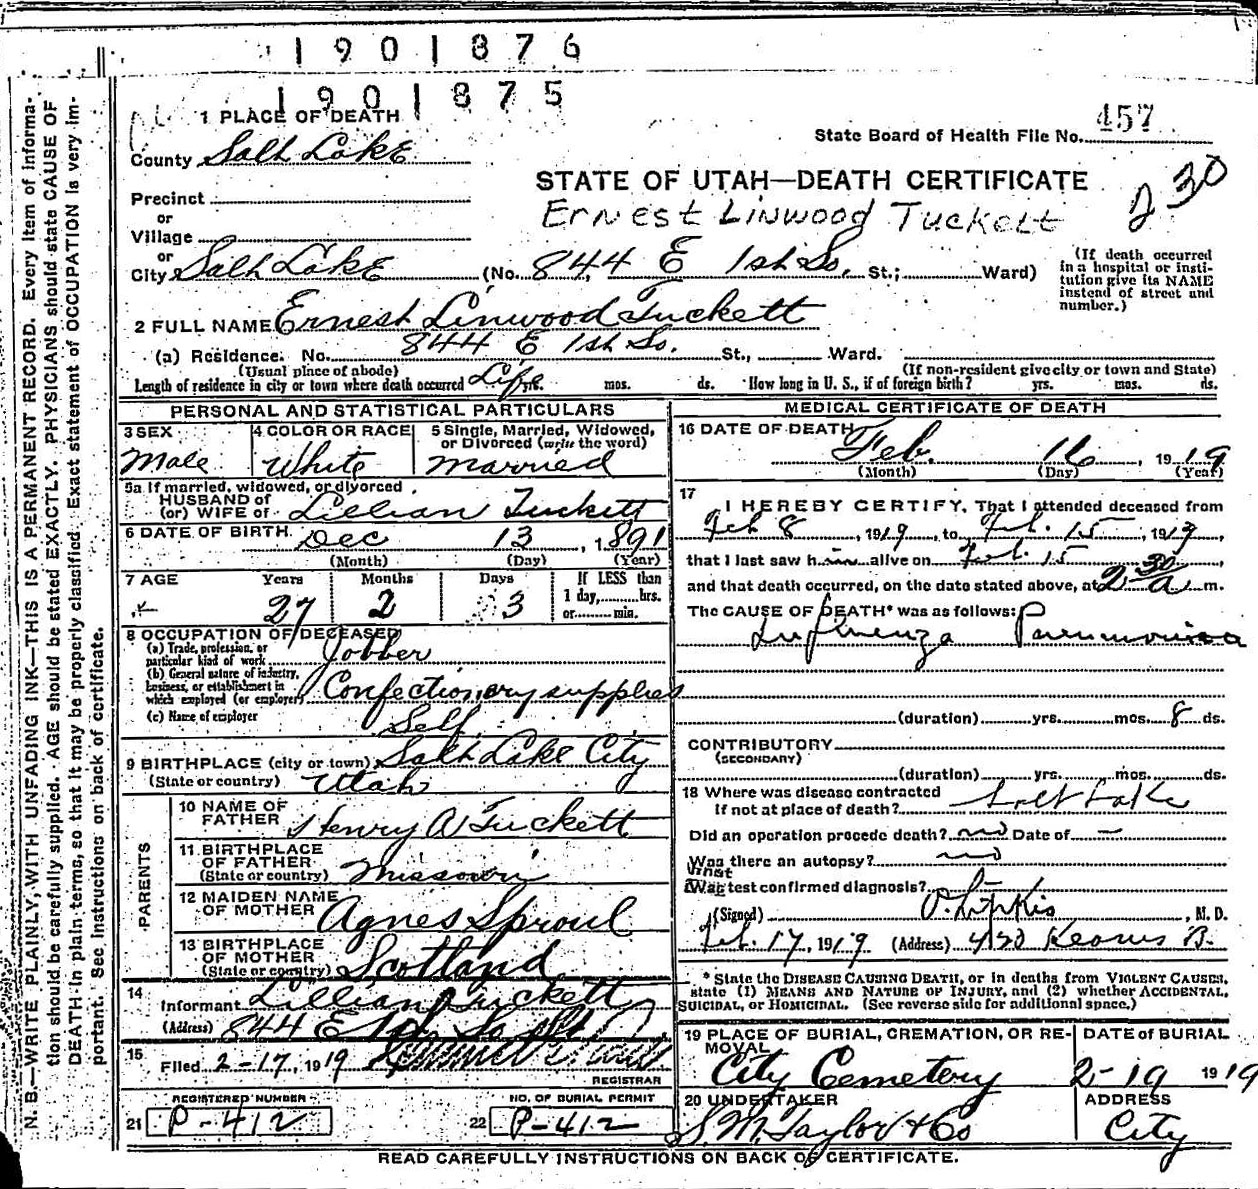 1901876
1901875
1 PLACE OF DEATH
State Board of Health File No. 457
County Salt Lake
STATE OF UTAH—DEATH CERTIFICATE
230
Precinct
Ernest Linwood Tuckett
or
Village
or
City Salt Lake (No. 844 E 1st So. St.; Ward)
(If death occurred in a hospital or insti-
tution give its NAME instead of street and number.)
2 FULL NAME Ernest Linwood Tuckett
(a) Residence. No. 844 E 1st So. St., Ward.
(Usual place of abode) (If non-resident give city or town and State)
Length of residence in city or town where death occurred Life yrs. mos. ds. How long in U. S., if of foreign birth? yrs. mos. ds.
PERSONAL AND STATISTICAL PARTICULARS
3 SEX Male
4 COLOR OR RACE White
5 Single, Married, Widowed, or Divorced (write the word) Married
5a If married, widowed, or divorced
HUSBAND of
(or) WIFE of Lillian Tuckett
6 DATE OF BIRTH Dec 13, 1891
(Month) (Day) (Year)
7 AGE Years Months Days If LESS than
1 day, hrs.
27 2 3 or min.
8 OCCUPATION OF DECEASED
(a) Trade, profession, or particular kind of work Jobber
(b) General nature of industry, business, or establishment in which employed (or employer) Confectionery supplies
(c) Name of employer Self
9 BIRTHPLACE (city or town) Salt Lake City
(State or country) Utah
PARENTS
10 NAME OF FATHER Henry A Tuckett
11 BIRTHPLACE OF FATHER (State or country) Missouri
12 MAIDEN NAME OF MOTHER Agnes Sproul
13 BIRTHPLACE OF MOTHER (State or country) Scotland
14 Informant Lillian Tuckett
(Address) 844 E 1st So
15 Filed 2-17, 1919
REGISTRAR
REGISTERED NUMBER
21 P-412
NO. OF BURIAL PERMIT
22 P-412
MEDICAL CERTIFICATE OF DEATH
16 DATE OF DEATH Feb. 16, 1919
(Month) (Day) (Year)
17 I HEREBY CERTIFY, That I attended deceased from
Feb 8, 1919, to Feb. 15, 1919,
that I last saw him alive on Feb. 15
and that death occurred, on the date stated above, at 2 30 a m.
The CAUSE OF DEATH* was as follows:
Influenza Pneumonia
(duration) yrs. mos. 8 ds.
CONTRIBUTORY
(SECONDARY)
(duration) yrs. mos. ds.
18 Where was disease contracted
If not at place of death? Salt Lake
Did an operation precede death? no Date of —
Was there an autopsy? no
What
Was test confirmed diagnosis? —
(Signed) , M. D.
Feb. 17, 1919 (Address) Kearns B.
* State the DISEASE CAUSING DEATH, or in deaths from VIOLENT CAUSES,
state (1) MEANS AND NATURE OF INJURY, and (2) whether ACCIDENTAL,
SUICIDAL, or HOMICIDAL. (See reverse side for additional space.)
19 PLACE OF BURIAL, CREMATION, OR RE-
MOVAL
City Cemetery
DATE of BURIAL
2-19 1919
20 UNDERTAKER
S. M. Taylor & Co
ADDRESS
City
READ CAREFULLY INSTRUCTIONS ON BACK OF CERTIFICATE.
N. B.—WRITE PLAINLY, WITH UNFADING INK—THIS IS A PERMANENT RECORD. Every item of informa-
tion should be carefully supplied. AGE should be stated EXACTLY. PHYSICIANS should state CAUSE OF
DEATH in plain terms, so that it may be properly classified. Exact statement of OCCUPATION is very im-
portant. See instructions on back of certificate.